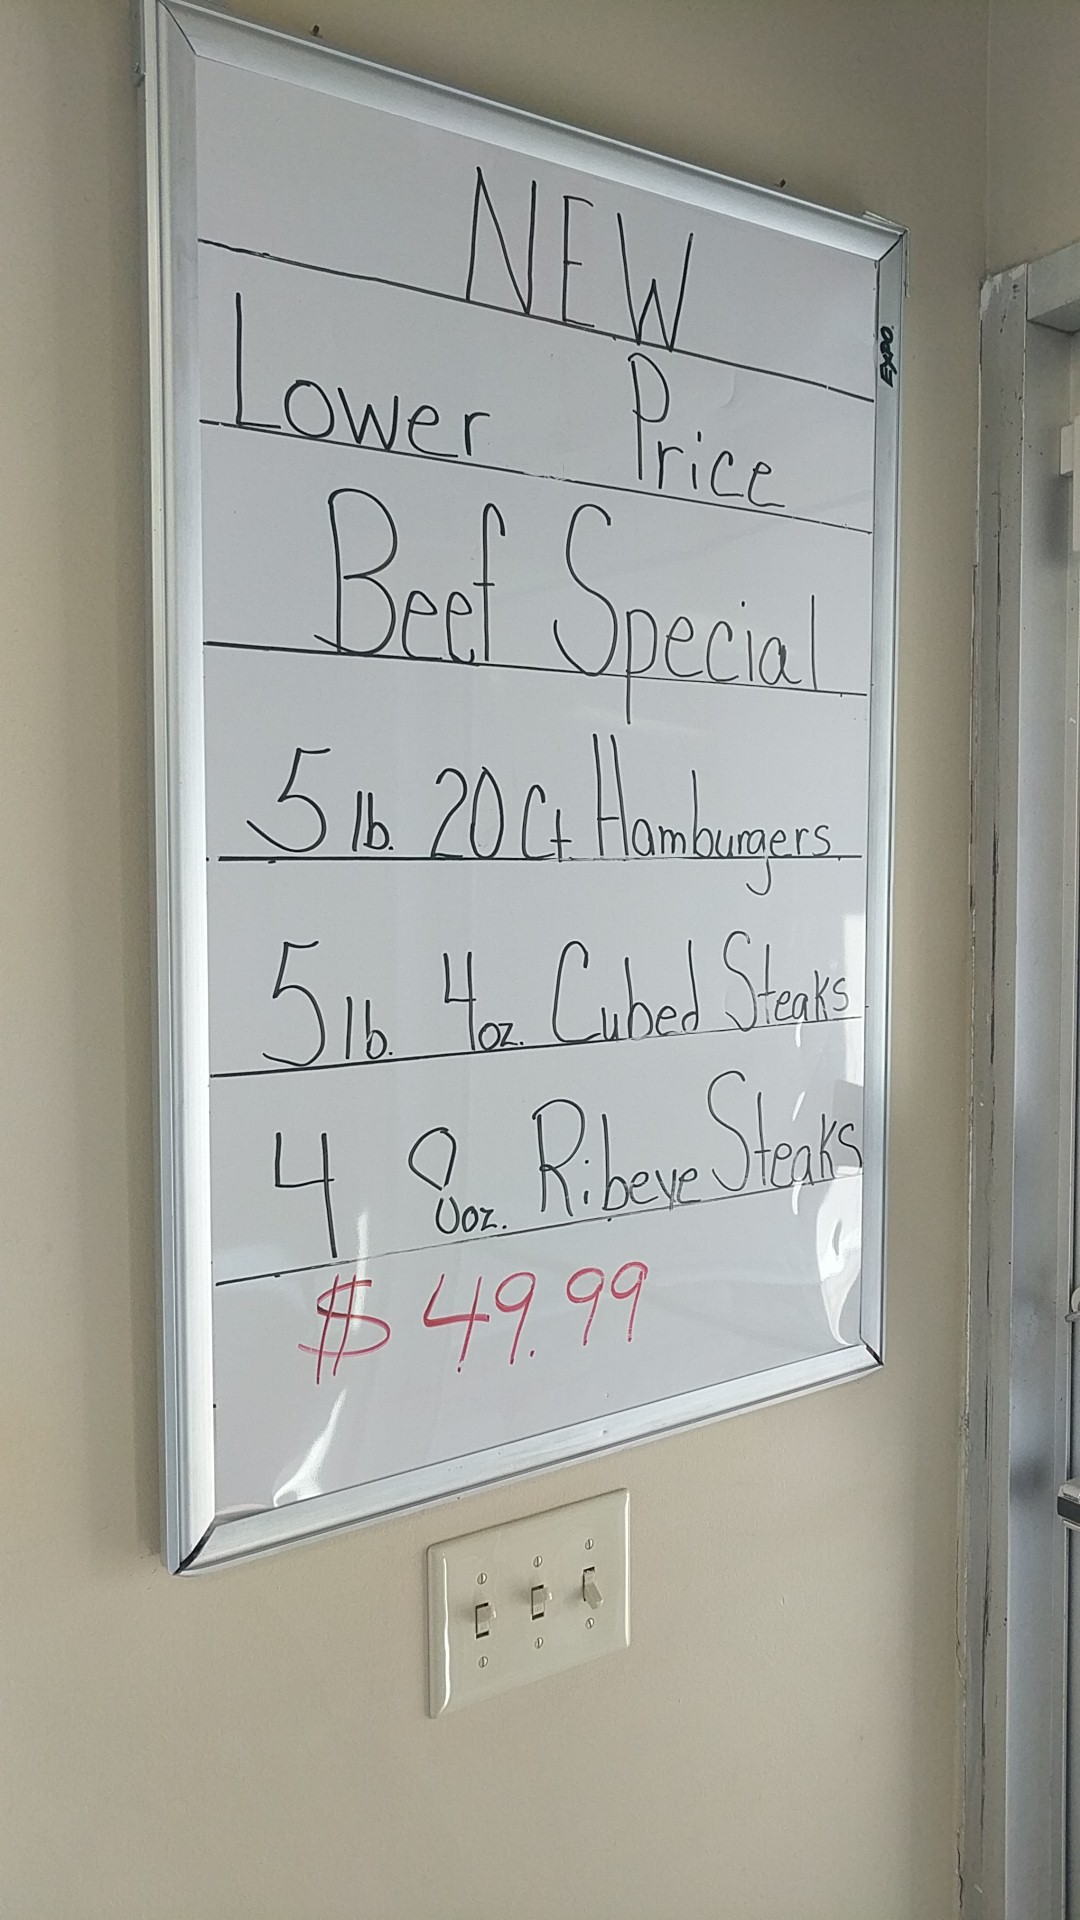 NEW
Lower Price
Beef Special
5 lb. 20 Ct Hamburgers
5 lb. 4 oz. Cubed Steaks
4 8 oz. Ribeye Steaks
$ 49.99
EXPO